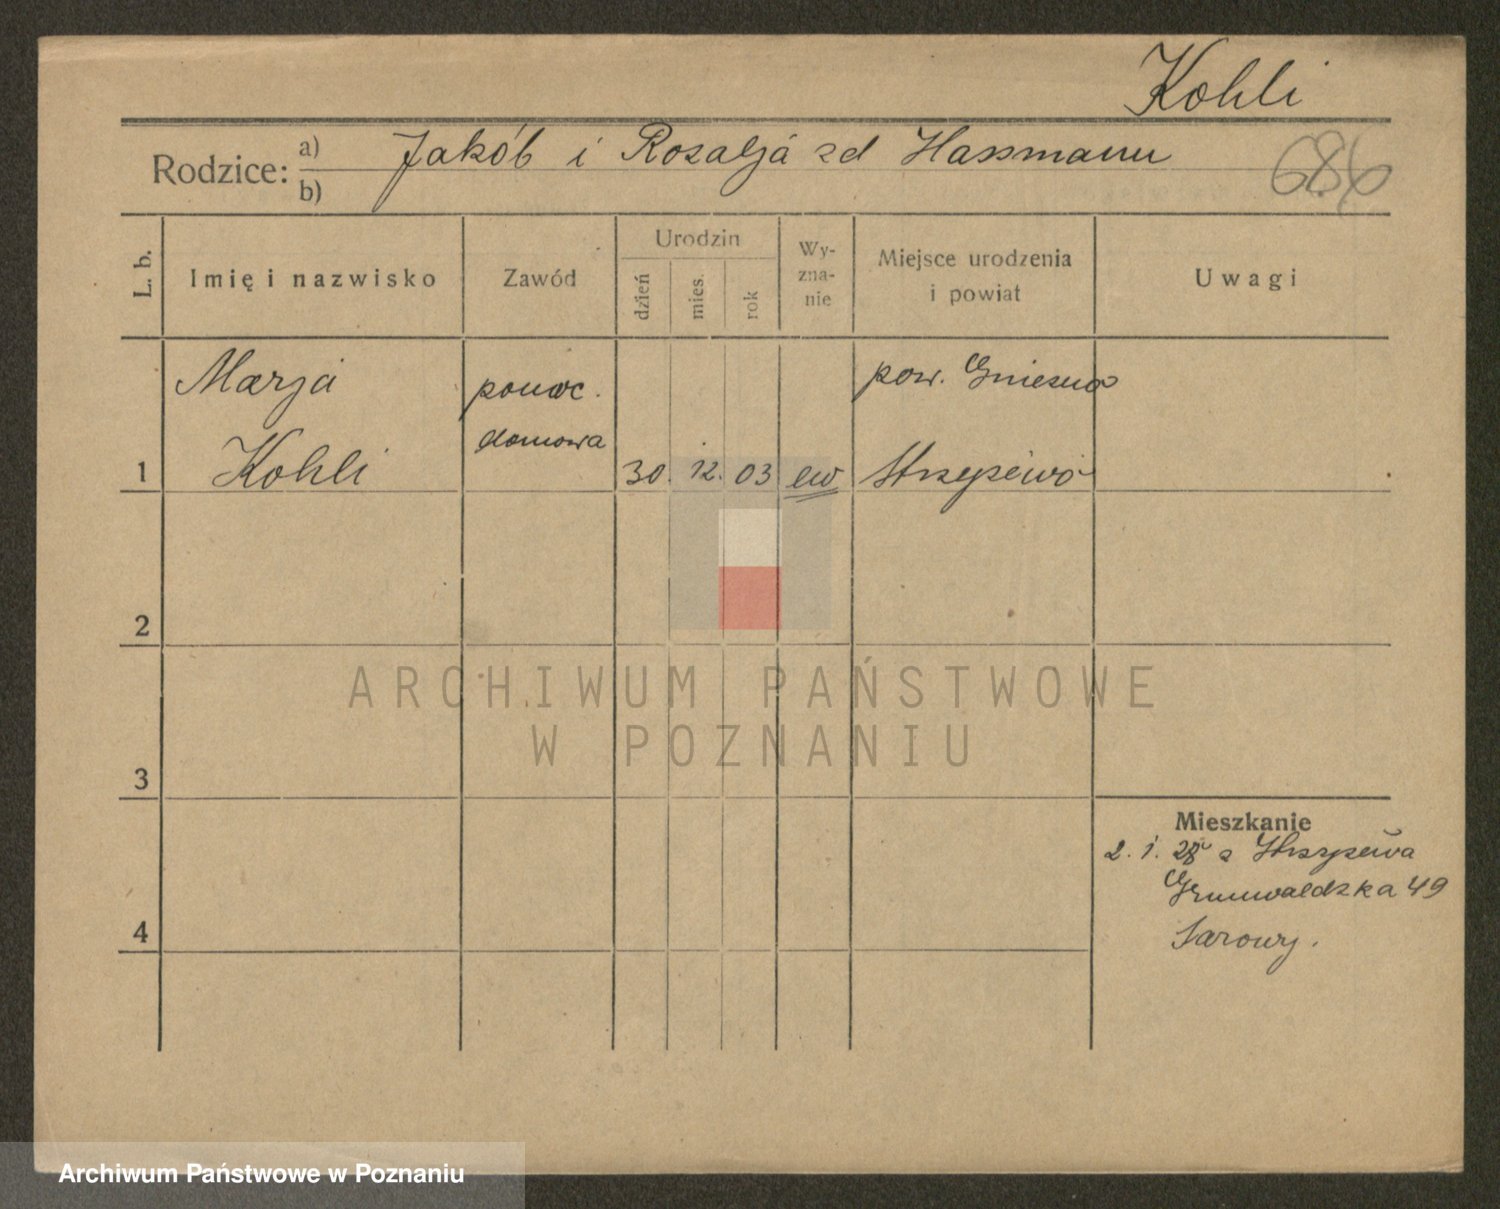 Kohli
Rodzice: a) Jakób i Rozalja zd Hassmann
b)
686
L. b.
Imię i nazwisko
Zawód
Urodzin
dzień
mies.
rok
Wy-
zna-
nie
Miejsce urodzenia
i powiat
Uwagi
Marja
Kohli
pomoc.
domowa
30. 12. 03
ew
pow. Gniezno
Strzyżewo
1
2
3
4
Mieszkanie
2. 1. 28 z Strzyżewa
Grunwaldzka 49
ARCHIWUM PAŃSTWOWE
W POZNANIU
Archiwum Państwowe w Poznaniu